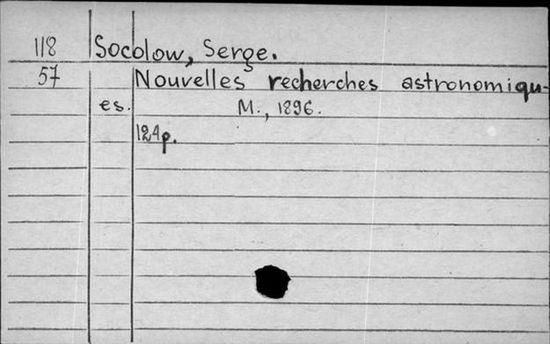 118 Socolow, Serge.
57 Nouvelles recherches astronomiqu-
es. M., 1896.
124p.